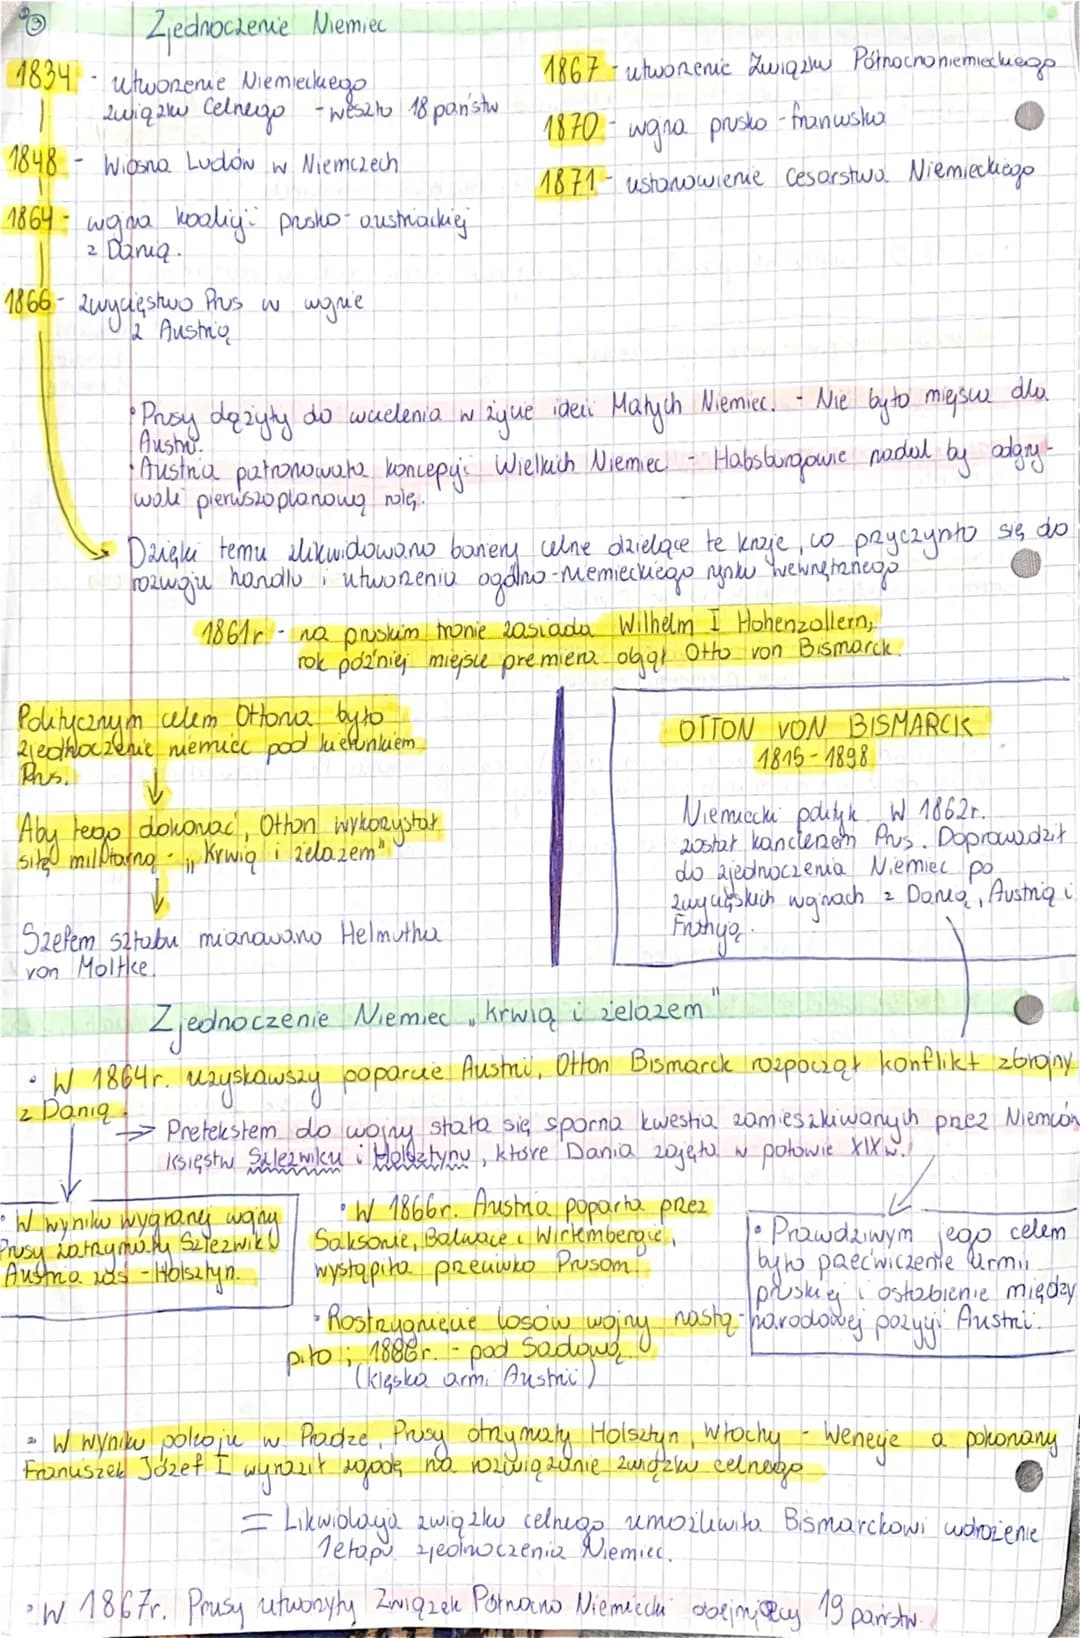 Zjednoczenie Niemiec
1834 - utworzenie Niemieckiego
związku Celnego - weszło 18 państw
1848 - Wiosna Ludów w Niemczech
1864 - wojna koalicji prusko-austriackiej
z Danią.
1866 - zwycięstwo Prus w wojnie
z Austrią
1867 - utworzenie Związku Północnoniemieckiego
1870 - wojna prusko-francuska
1871 - ustanowienie Cesarstwa Niemieckiego
• Prusy dążyły do wcielenia w życie idei Małych Niemiec. - Nie było miejsca dla
Austrii.
• Austria patronowała koncepcji Wielkich Niemiec - Habsburgowie nadal by odgry-
wali pierwszoplanową rolę.
Dzięki temu zlikwidowano bariery celne dzielące te kraje, co przyczyniło się do
rozwoju handlu i utworzeniu ogólno-niemieckiego rynku wewnętrznego
1861r - na pruskim tronie zasiada Wilhelm I Hohenzollern,
rok później miejsce premiera objął Otto von Bismarck.
Politycznym celem Ottona było
zjednoczenie niemiec pod kierunkiem
Prus.
Aby tego dokonać, Otton wykorzystał
siłę militarną - „Krwią i żelazem"
Szefem sztabu mianowano Helmutha
von Moltke.
OTTON VON BISMARCK
1815-1898
Niemiecki polityk. W 1862r.
został kanclerzem Prus. Doprowadził
do zjednoczenia Niemiec po
zwycięskich wojnach z Danią, Austrią i
Francją.
Zjednoczenie Niemiec „krwią i żelazem"
• W 1864r. uzyskawszy poparcie Austrii, Otton Bismarck rozpoczął konflikt zbrojny
z Danią
→ Pretekstem do wojny stała się sporna kwestia zamieszkiwanych przez Niemców
księstw Szlezwiku i Holsztynu, które Dania zajęła w połowie XIXw.
• W wyniku wygranej wojny
Prusy zatrzymały Szlezwik
Austria zaś - Holsztyn.
• W 1866r. Austria poparta przez
Saksonie, Bawarię i Wirtembergię,
wystąpiła przeciwko Prusom.
• Prawdziwym jego celem
było przećwiczenie armii
pruskiej i osłabienie między
narodowej pozycji Austrii.
• Rostrzygnięcie losów wojny nastą-
piło ; 1886r. - pod Sadową.
(klęska armi Austrii)
• W wyniku pokoju w Pradze, Prusy otrzymały Holsztyn, Włochy - Wenecje a pokonany
Franciszek Józef I wyraził zgodę na rozwiązanie związku celnego
= Likwidacja związku celnego umożliwiła Bismarckowi wdrożenie
1etapu zjednoczenia Niemiec.
• W 1867r. Prusy utworzyły Związek Północno Niemiecki obejmujący 19 państw.